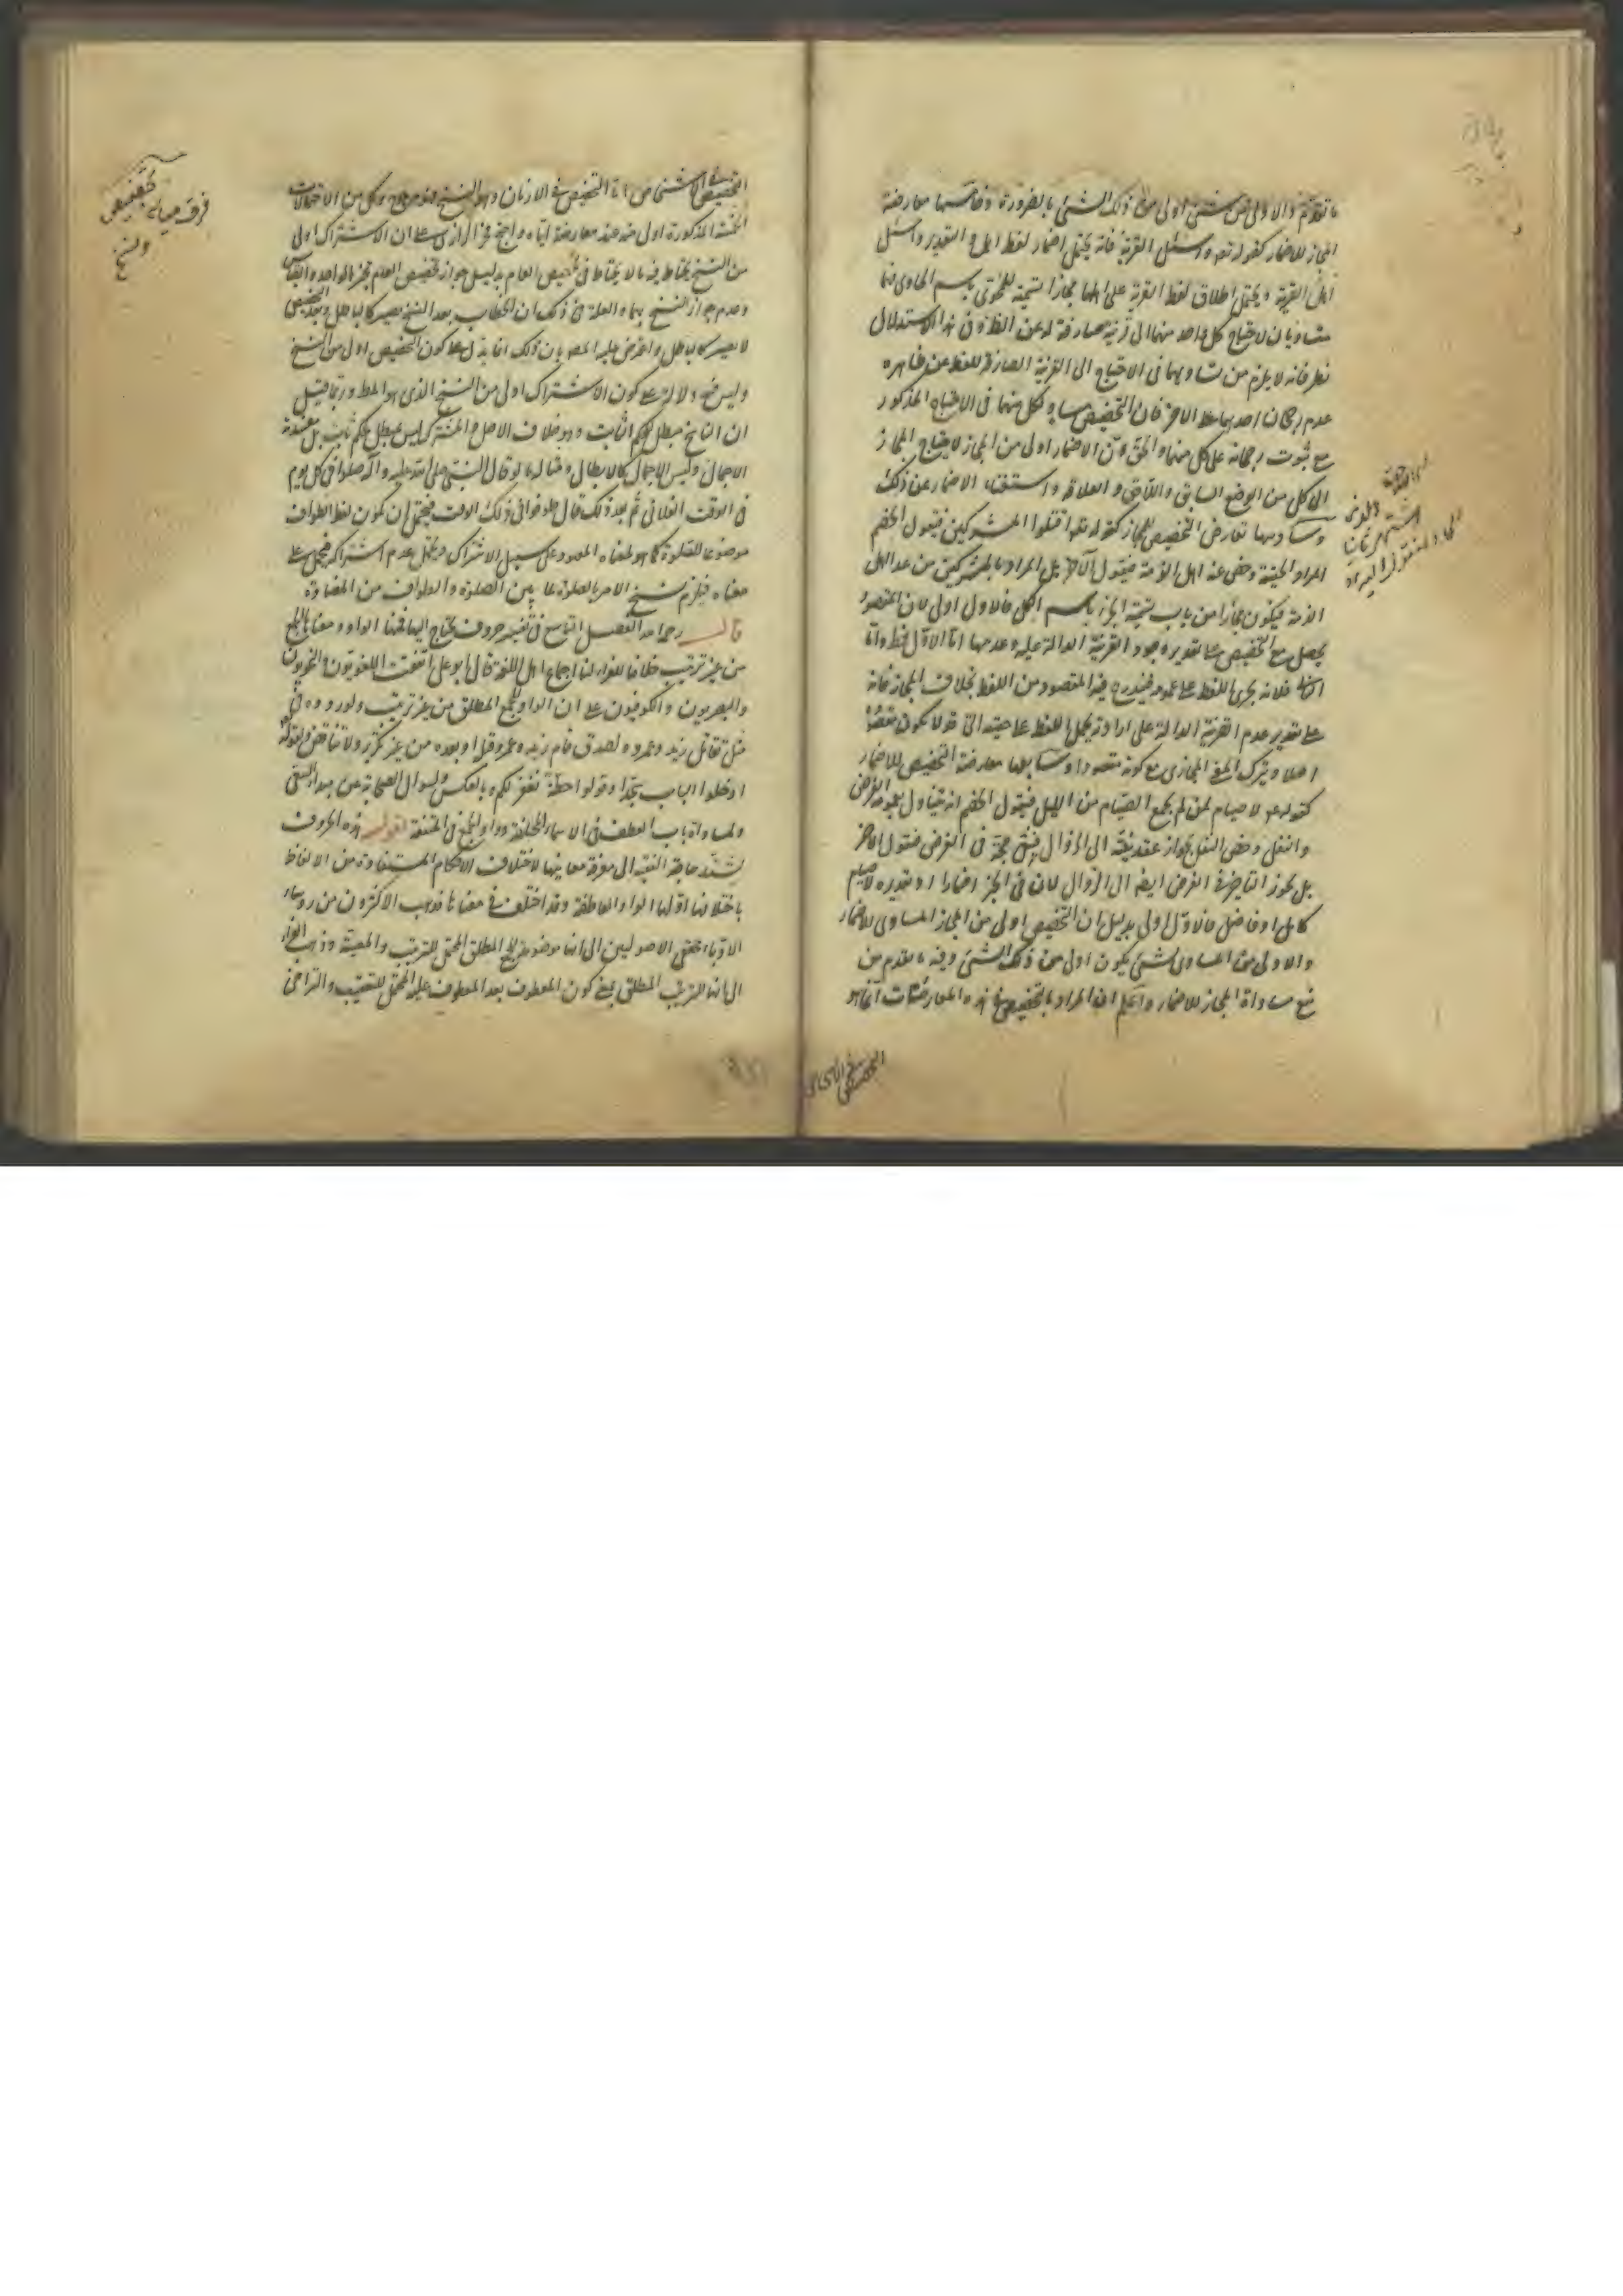 ما تقدم والاولى من شئ اولى من ذلك الشئ بالضرورة وخامسها معارضة
المجاز للاضمار كقوله تعه واسئل القرية فانه يحتمل اضمار لفظ اهل والتقدير واسئل
اهل القرية ويحتمل اطلاق لفظ القرية على اهلها مجازا تسمية للمحوى باسم الحاوى فهما
متساويان لاحتياج كل واحد منهما الى قرينة صارفة له عن الظ وفى هذا الاستدلال
نظر فانه لا يلزم من تساويهما فى الاحتياج الى القرينة الصارفة للفظ عن ظاهره
عدم رجحان احدهما على الاخر فان التخصيص مساو لكل منهما فى الاحتياج المذكور
مع ثبوت رجحانه على كل منهما والحق ان الاضمار اولى من المجاز لاحتياج المجاز
الى كل من الوضع السابق واللاحق والعلاقة واستغناء الاضمار عن ذلك
وسادسها تعارض التخصيص للمجاز كقوله تعه اقتلوا المشركين فيقول الخصم
المراد الحقيقة وخص عنه اهل الذمة فيقول الآخر بل المراد بالمشركين من عدا اهل
الذمة فيكون مجازا من باب تسمية الجزء باسم الكل فالاول اولى لان المقصود
يحصل مع التخصيص على تقدير وجود القرينة الدالة عليه وعدمها اما الاول فظ واما
الثانى فلانه يجرى اللفظ على عمومه فيندرج فيه المقصود من اللفظ بخلاف المجاز فانه
على تقدير عدم القرينة الدالة على ارادته يحمل اللفظ على حقيقته التى قد لا تكون مقصودة
اصلا ويترك المعنى المجازى مع كونه مقصودا وسابعها معارضة التخصيص للاضمار
كقوله عم لا صيام لمن لم يجمع الصيام من الليل فيقول الخصم انه يتناول بعمومه الفرض
والنفل وخص النفل بجواز عقد نيته الى الزوال فيبقى حجة فى الفرض فيقول الاخر
بل يجوز التاخير فى الفرض ايضه الى الزوال لان فى الخبر اضمارا وتقديره لا صيام
كامل او فاضل فالاول اولى بدليل ان التخصيص اولى من المجاز المساوى للاضمار
والاولى من المساوى لشئ يكون اولى من ذلك الشئ وفيه ما تقدم من
منع مساواة المجاز للاضمار واعلم ان المراد بالتخصيص فى هذه المعارضات انما هو
التخصيص فى الاشخاص اما التخصيص فى الازمان وهو النسخ فهو مرجوح وكل من الاحتمالات
الخمسة المذكورة اولى منه عند معارضته اياه واحتج فخر الرازى على ان الاشتراك اولى
من النسخ يحتاط فيه ما لا يحتاط فى تخصيص العام بدليل جواز تخصيص العام بخبر الواحد والقياس
وعدم جواز النسخ بهما والعلة فى ذلك ان الخطاب بعد النسخ يصير كالباطل وبعد التخصيص
لا يصير كالباطل واعترض عليه المصه بان ذلك انما يدل على كون التخصيص اولى من النسخ
وليس فيه دلالة على كون الاشتراك اولى من النسخ الذى هو المط وربما قيل
ان الناسخ مبطل لحكم ثابت وهو خلاف الاصل والمشترك ليس بمبطل لحكم ثابت بل مقتضاه
الاجمال وليس الاجمال كالابطال ومثاله ما لو قال النبى صلى الله عليه وآله صلوا فى كل يوم
فى الوقت الفلانى ثم بعد ذلك قال طوفوا فى ذلك الوقت فيحتمل ان يكون لفظ الطواف
موضوعا للصلوة كما هو لمعناه المعهود على سبيل الاشتراك ويحتمل عدم اشتراكه فيحمل على
معناه فيلزم نسخ الامر بالصلوة لما بين الصلوة والطواف من المضادة
قال رحمه الله الفصل التاسع فى تفسير حروف يحتاج اليها فمنها الواو ومعناها الجمع
من غير ترتيب خلافا للفراء لنا اجماع اهل اللغة قال ابو على اتفقت اللغويون والنحويون
والبصريون والكوفيون على ان الواو للجمع المطلق من غير ترتيب ولوروده فى
مثل تقاتل زيد وعمرو ولصدق قام زيد وعمرو قبله او بعده من غير تكرير ولا تناقض ولقوله
ادخلوا الباب سجدا وقولوا حطة نغفر لكم وبالعكس ولسؤال الصحابة عن مبدا السعى
ولمساواة باب العطف فى الاسماء المختلفة وواو الجمع فى المتفقة اقول هذه الحروف
يشتد حاجة الفقيه الى معرفة معانيها لاختلاف الاحكام المستفادة من الالفاظ
باختلافها اولها الواو العاطفة وقد اختلف فى معناها فذهب الاكثرون من رؤساء
الادباء ومحققى الاصوليين الى انها موضوعة للجمع المطلق المحتمل للترتيب والمعية وذهب الفراء
الى انها للترتيب المطلق بمعنى كون المعطوف بعد المعطوف عليه المحتمل للتعقيب والتراخى
فرق ميان تخصيص
ونسخ
التخصيص فى الاشخاص